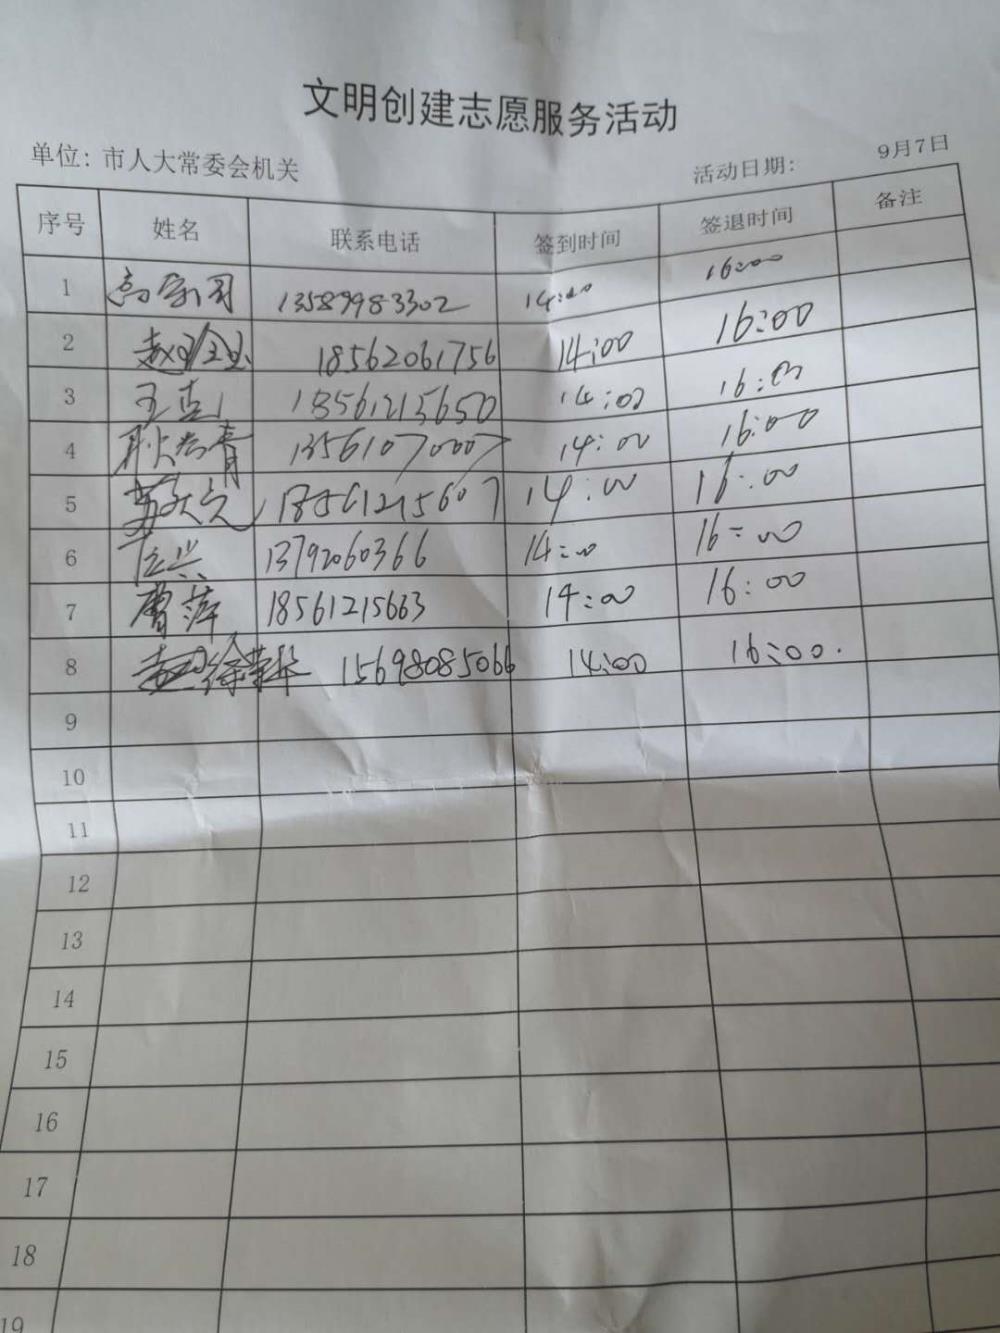 文明创建志愿服务活动
单位：市人大常委会机关 活动日期： 9月7日
序号 姓名 联系电话 签到时间 签退时间 备注
1 13589983302 14:00 16:00
2 18562061756 14:00 16:00
3 18561215650 14:00 16:00
4 13561070007 14:00 16:00
5 18561215607 14:00 16:00
6 13792060366 14:00 16:00
7 曹萍 18561215663 14:00 16:00
8 15698085066 14:00 16:00.
9
10
11
12
13
14
15
16
17
18
19